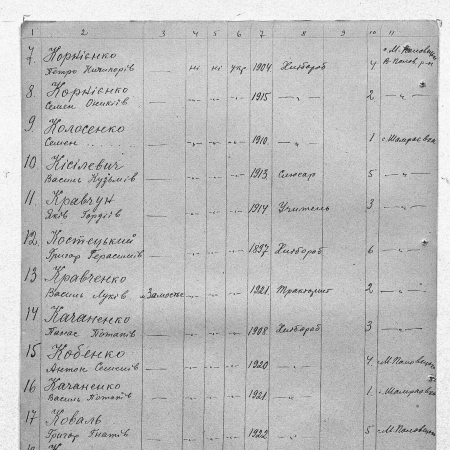 1 2 3 4 5 6 7 8 9 10 11
7. Корнієнко с. М. Половецьк
Петро Ничипорів — ні ні укр 1904 Хлібороб 4
8. Корнієнко
Семен Оникіїв — —„— —„— —„— 1915 —„— 2 —„—
9. Колосенко
Семен . . — —„— —„— —„— 1910 —„— 1 с Шамраєвка
10. Кісілевич
Василь Кузьмів — —„— —„— —„— 1913 Слюсар 5 —„—
11. Кравчун
Яків Гордіїв — —„— —„— —„— 1914 Учитель 3 —„—
12. Костецький
Григор Герасимів — —„— —„— —„— 1897 Хлібороб 6 —„—
13 Кравченко
Василь Луків —„— —„— —„— 1921 Тракторист 2 —„—
14 Качаненко
Панас Потапів — —„— —„— —„— 1908 Хлібороб 3 —„—
15 Кобенко
Антон Семенів — —„— —„— —„— 1920 —„— 4 с М Половецьк
16 Качаненко
Василь Потапів — —„— —„— —„— 1921 —„— 1 с Шамраєвка
17 Коваль
Григор Гнатів — —„— —„— —„— 1922 —„— 5 с М. Половецьк